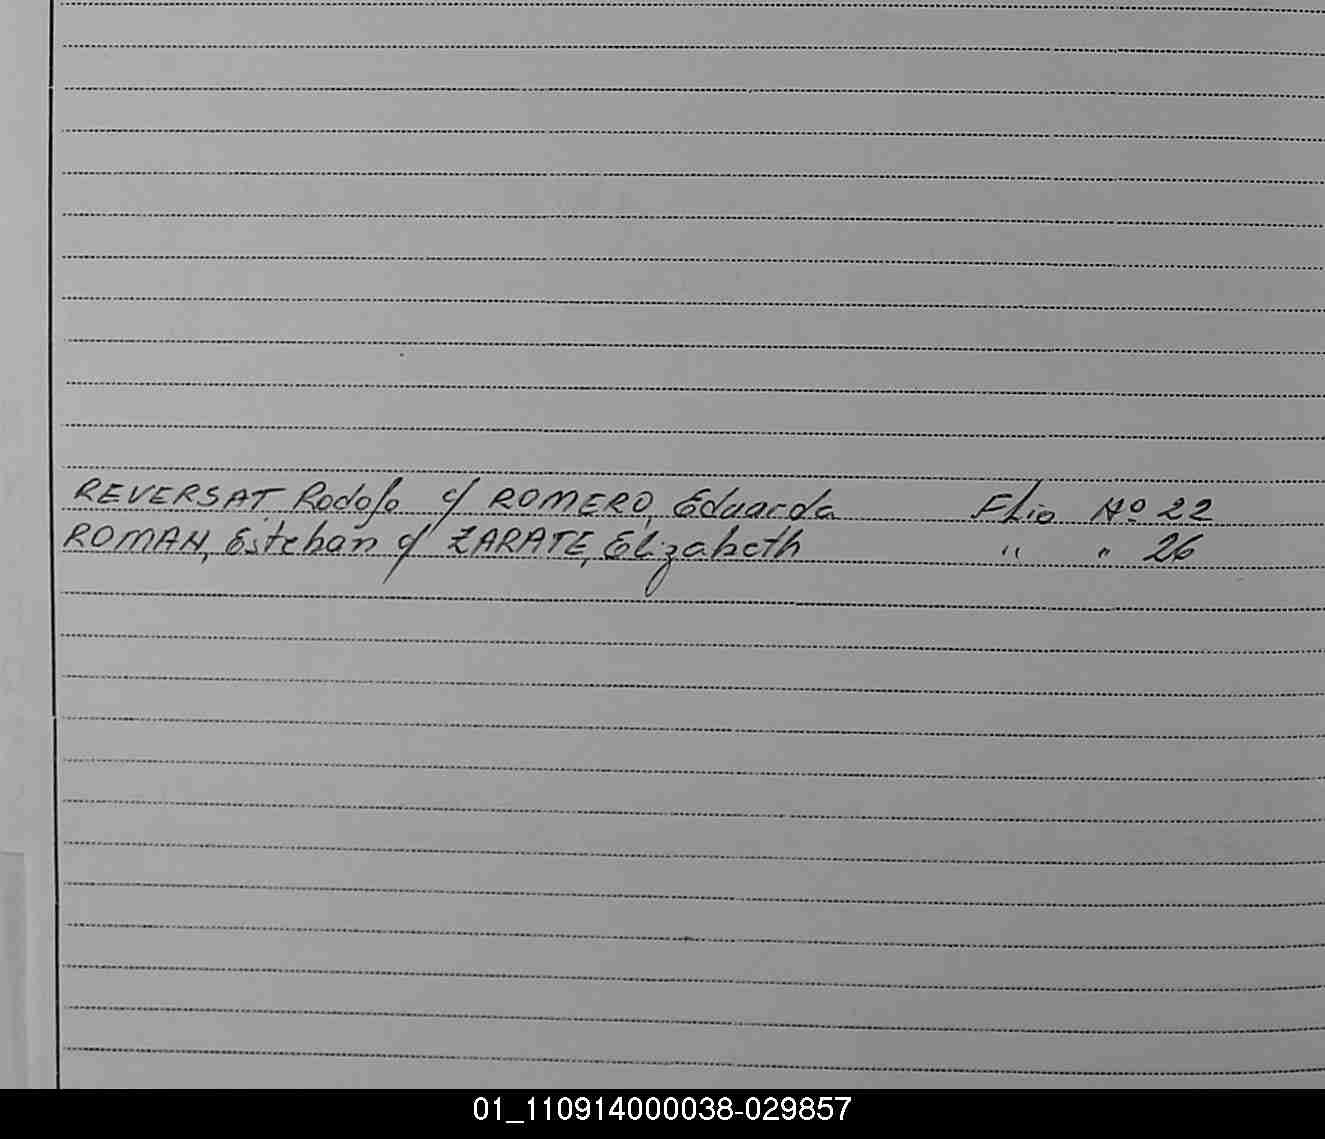 REVERSAT Rodofo c/ ROMERO, Eduarda Flio Nº 22
ROMAN, Esteban c/ ZARATE, Elizabeth " " 26
01_110914000038-029857